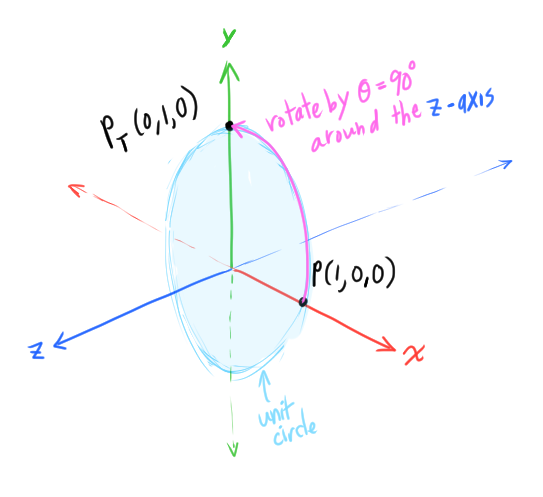 Y
P_T (0,1,0)
rotate by θ = 90°
around the z-axis
P(1,0,0)
z
x
unit
circle